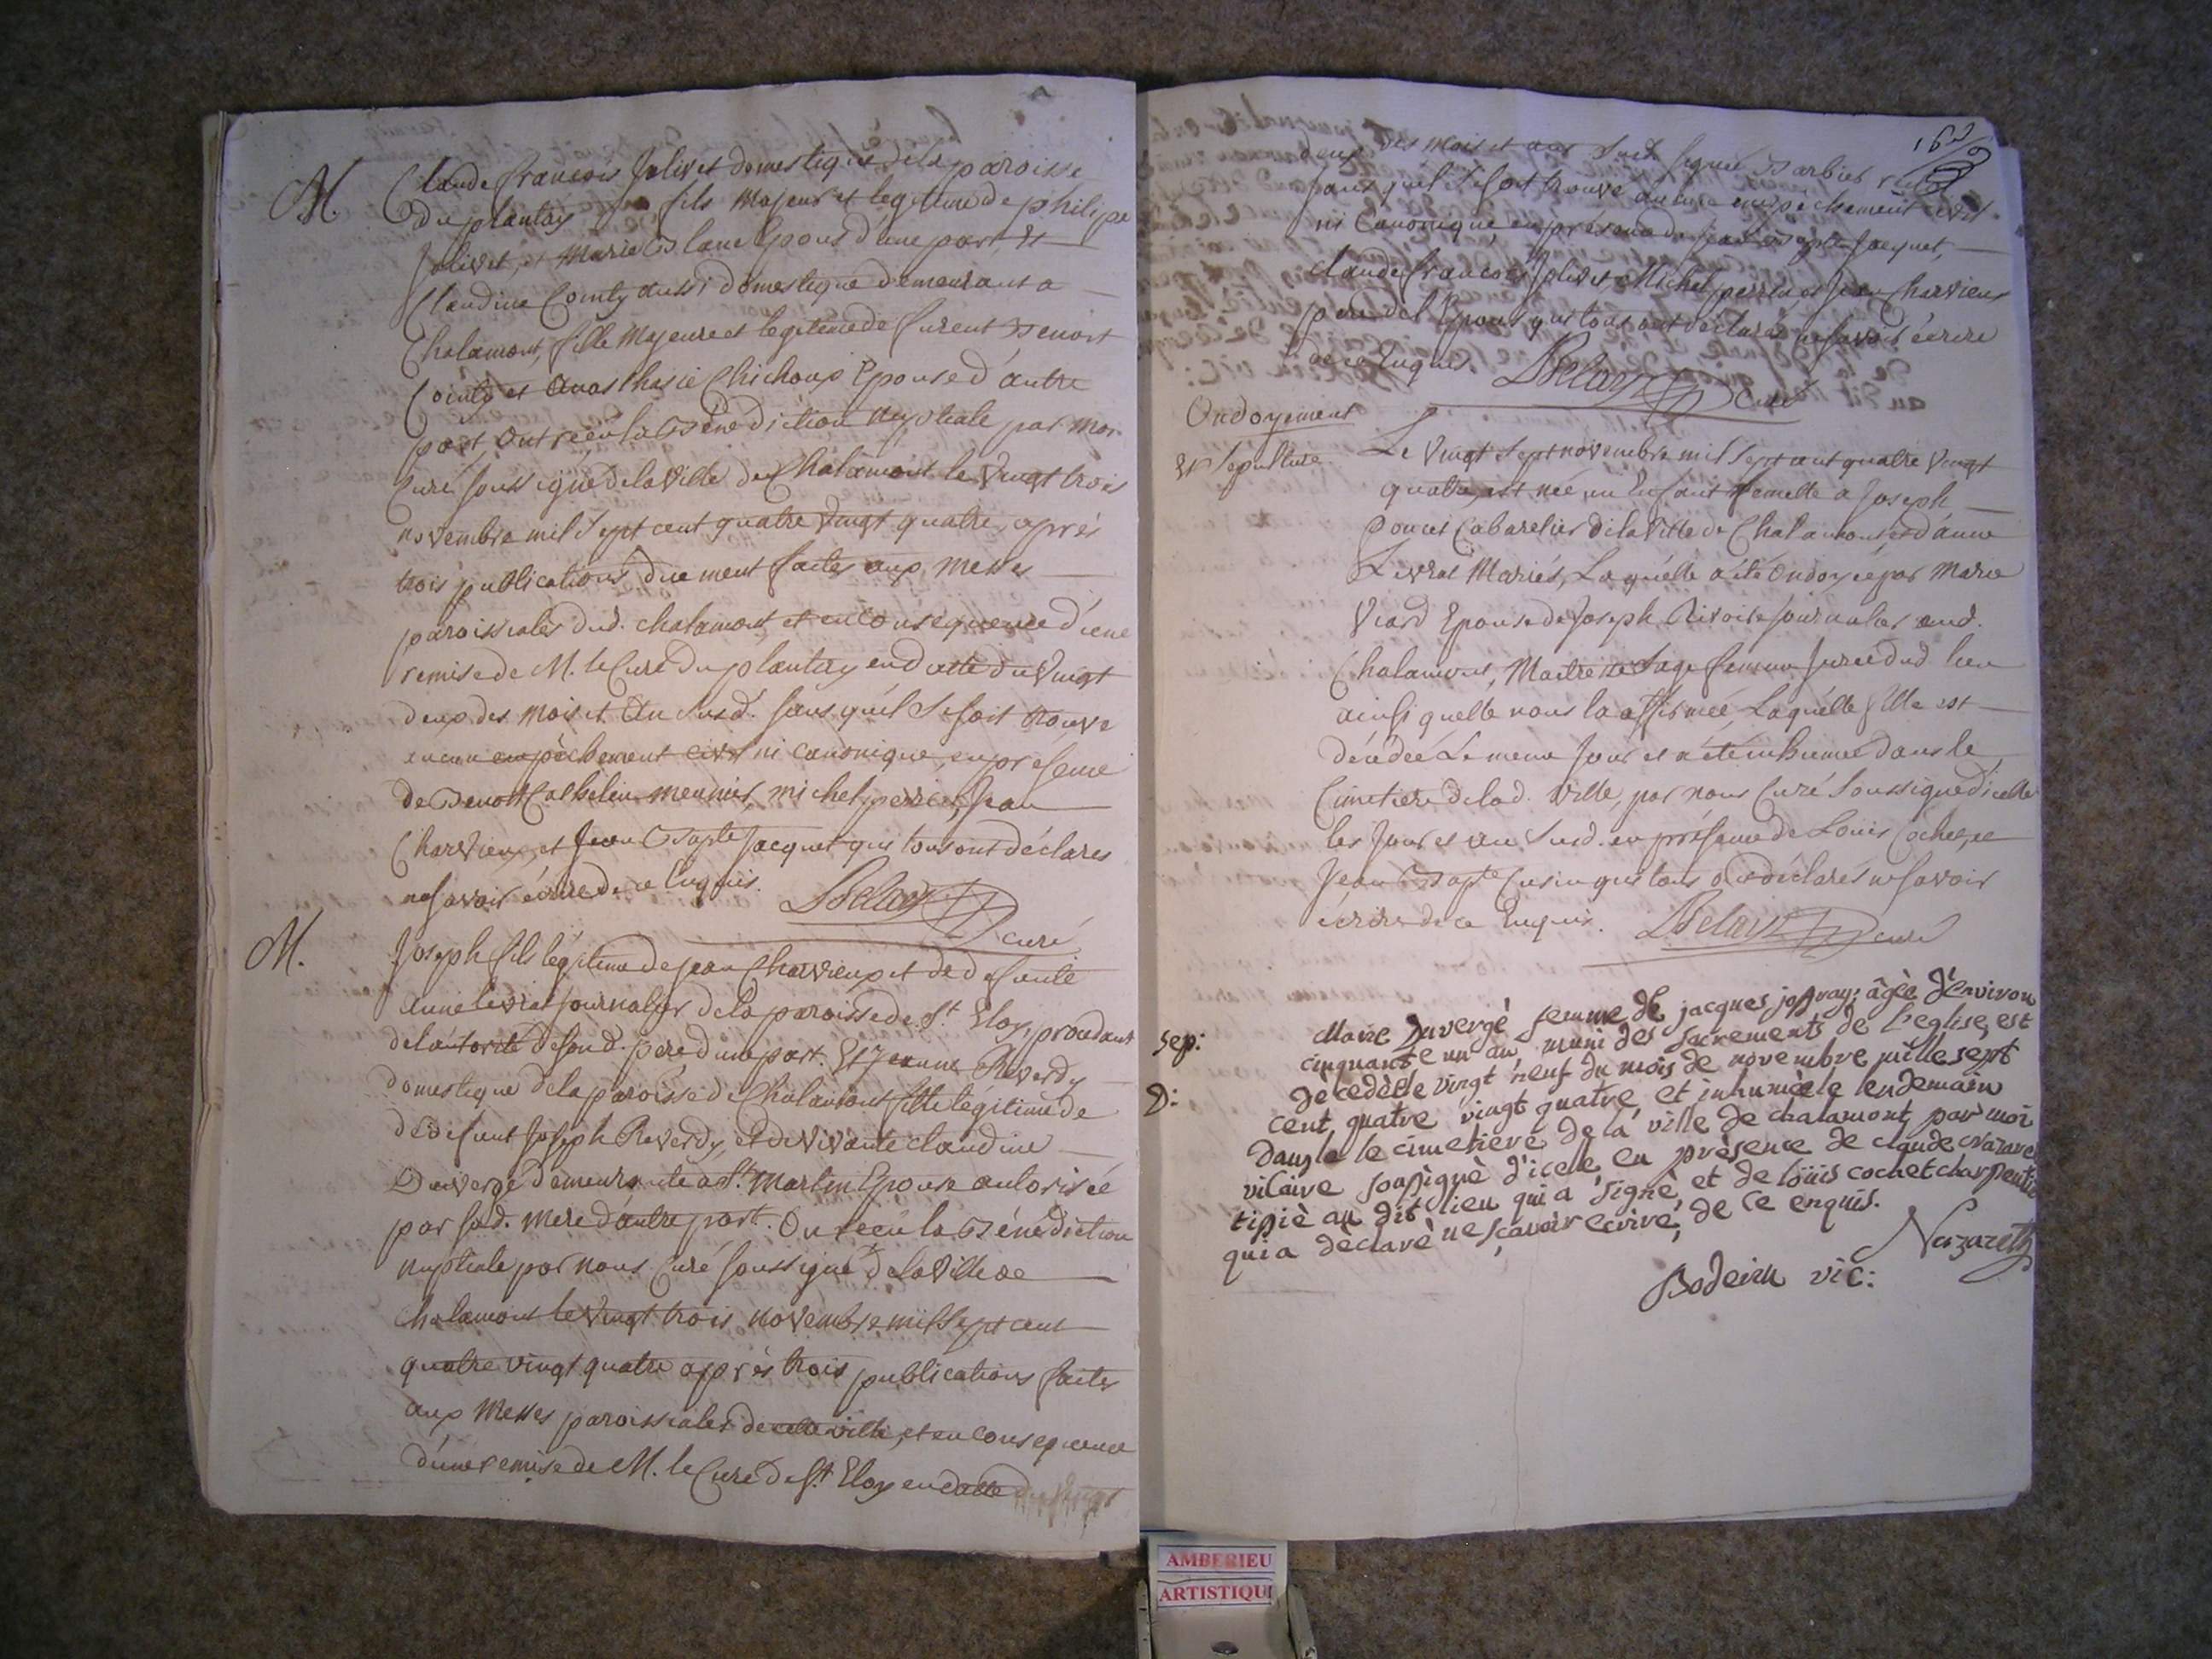 M.
Claude francois Jolivet domestique de la paroisse
du plantay fils majeur et legitime de philipe
Jolivet, et Marie Blanc Epoux d'une part, Et
Claudine Cointy aussi domestique demeurant a
Chalamont, fille Majeure et legitime de furent Benoit
Cointy et Anasthasie Chichoux Epouse d'autre
part, Ont recu la Bénédiction nuptiale par moi
Curé soussigné de la Ville de Chalamont le vingt trois
novembre mil sept cent quatre vingt quatre, après
trois publications duement faites aux Messes
paroissiales dud. chalamont et en conséquence d'une
remise de M. le Curé du plantay en datte du vingt
deux des mois et An susd. sans quél se soit trouvé
aucun empèchement civil ni canonique, en presence
de Benoit Cathelin meunier, michel perrier, Jean
Charvieux, et Jean Bapte Jacquet qui tous ont déclarés
ne savoir écrire de ce Enquis.
Belay curé
M.
Joseph fils légitime de Jean Charvieux et de defunte
anne levrat journalier de la paroisse de St. Eloy, procedant
de l'autorité de sond. père d'une part. Et Jeanne Reverdy
domestique de la paroisse de Chalamont fille légitime de
de defunt Joseph Reverdy, et de vivante claudine
Duvergé demeurante a St. Martin Epouse autorisée
par sad. mere d'autre part. Ont recu la Bénédiction
nuptiale par nous Curé soussigné de la Ville de
Chalamont le vingt trois novembre mil sept cent
quatre vingt quatre après trois publications faites
aux Messes paroissiales de cette ville, et en conséquence
d'une remise de M. le Curé de St. Eloy en datte du vingt
162
deux des mois et an susd. signée Barbier
sans quél se soit trouvé aucun empèchement civil
ni Canonique, en présence de Jean Bapte Jacquet,
claude francois Jolivet Michel perrier et Jean Charvieux
pere de l'Epoux qui tous ont déclarés ne savoir écrire
de ce Enquis. Belay Curé
Ondoyement
et sepulture
Le vingt sept novembre mil sept cent quatre vingt
quatre, est née un Enfant femelle a Joseph
Poncet Cabaretier de la Ville de Chalamont et d'anne
Levrat Mariés, Laquélle a été Ondoyée par Marie
Viard Epouse de Joseph Rivoire journalier aud.
Chalamont, Maitresse sage femme Jurée dud lieu
ainsi quelle nous la affirmée, Laquélle fille est
décédée Le meme jour et a été inhumée dans le
Cimetiere de lad. Ville, par nous Curé Soussigné d'icelle
les Jour et an susd. en présence de Louis Cochet, et
Jean Bapte Cusin qui tous ont déclarés ne savoir
écrire de ce Enquis. Belay curé
sep:
D:
Marie Duvergé femme de jacques joffray; âgèe d'environ
cinquante un an, muni des sacrements de l'eglise, est
dècedèe le vingt neuf du mois de novembre mille sept
cent quatre vingt quatre, et inhumèe le lendemain
dans le cimetiere de la ville de chalamont, par moi
vicaire soussignè d'icelle, en prèsence de claude nazaret
tissiè au dit lieu qui a signè, et de loüis cochet charpentie
qui a dèclarè ne sçavoir ecrire, de ce enquis.
Nazareth
Bodein vic:
AMBERIEU
ARTISTIQU